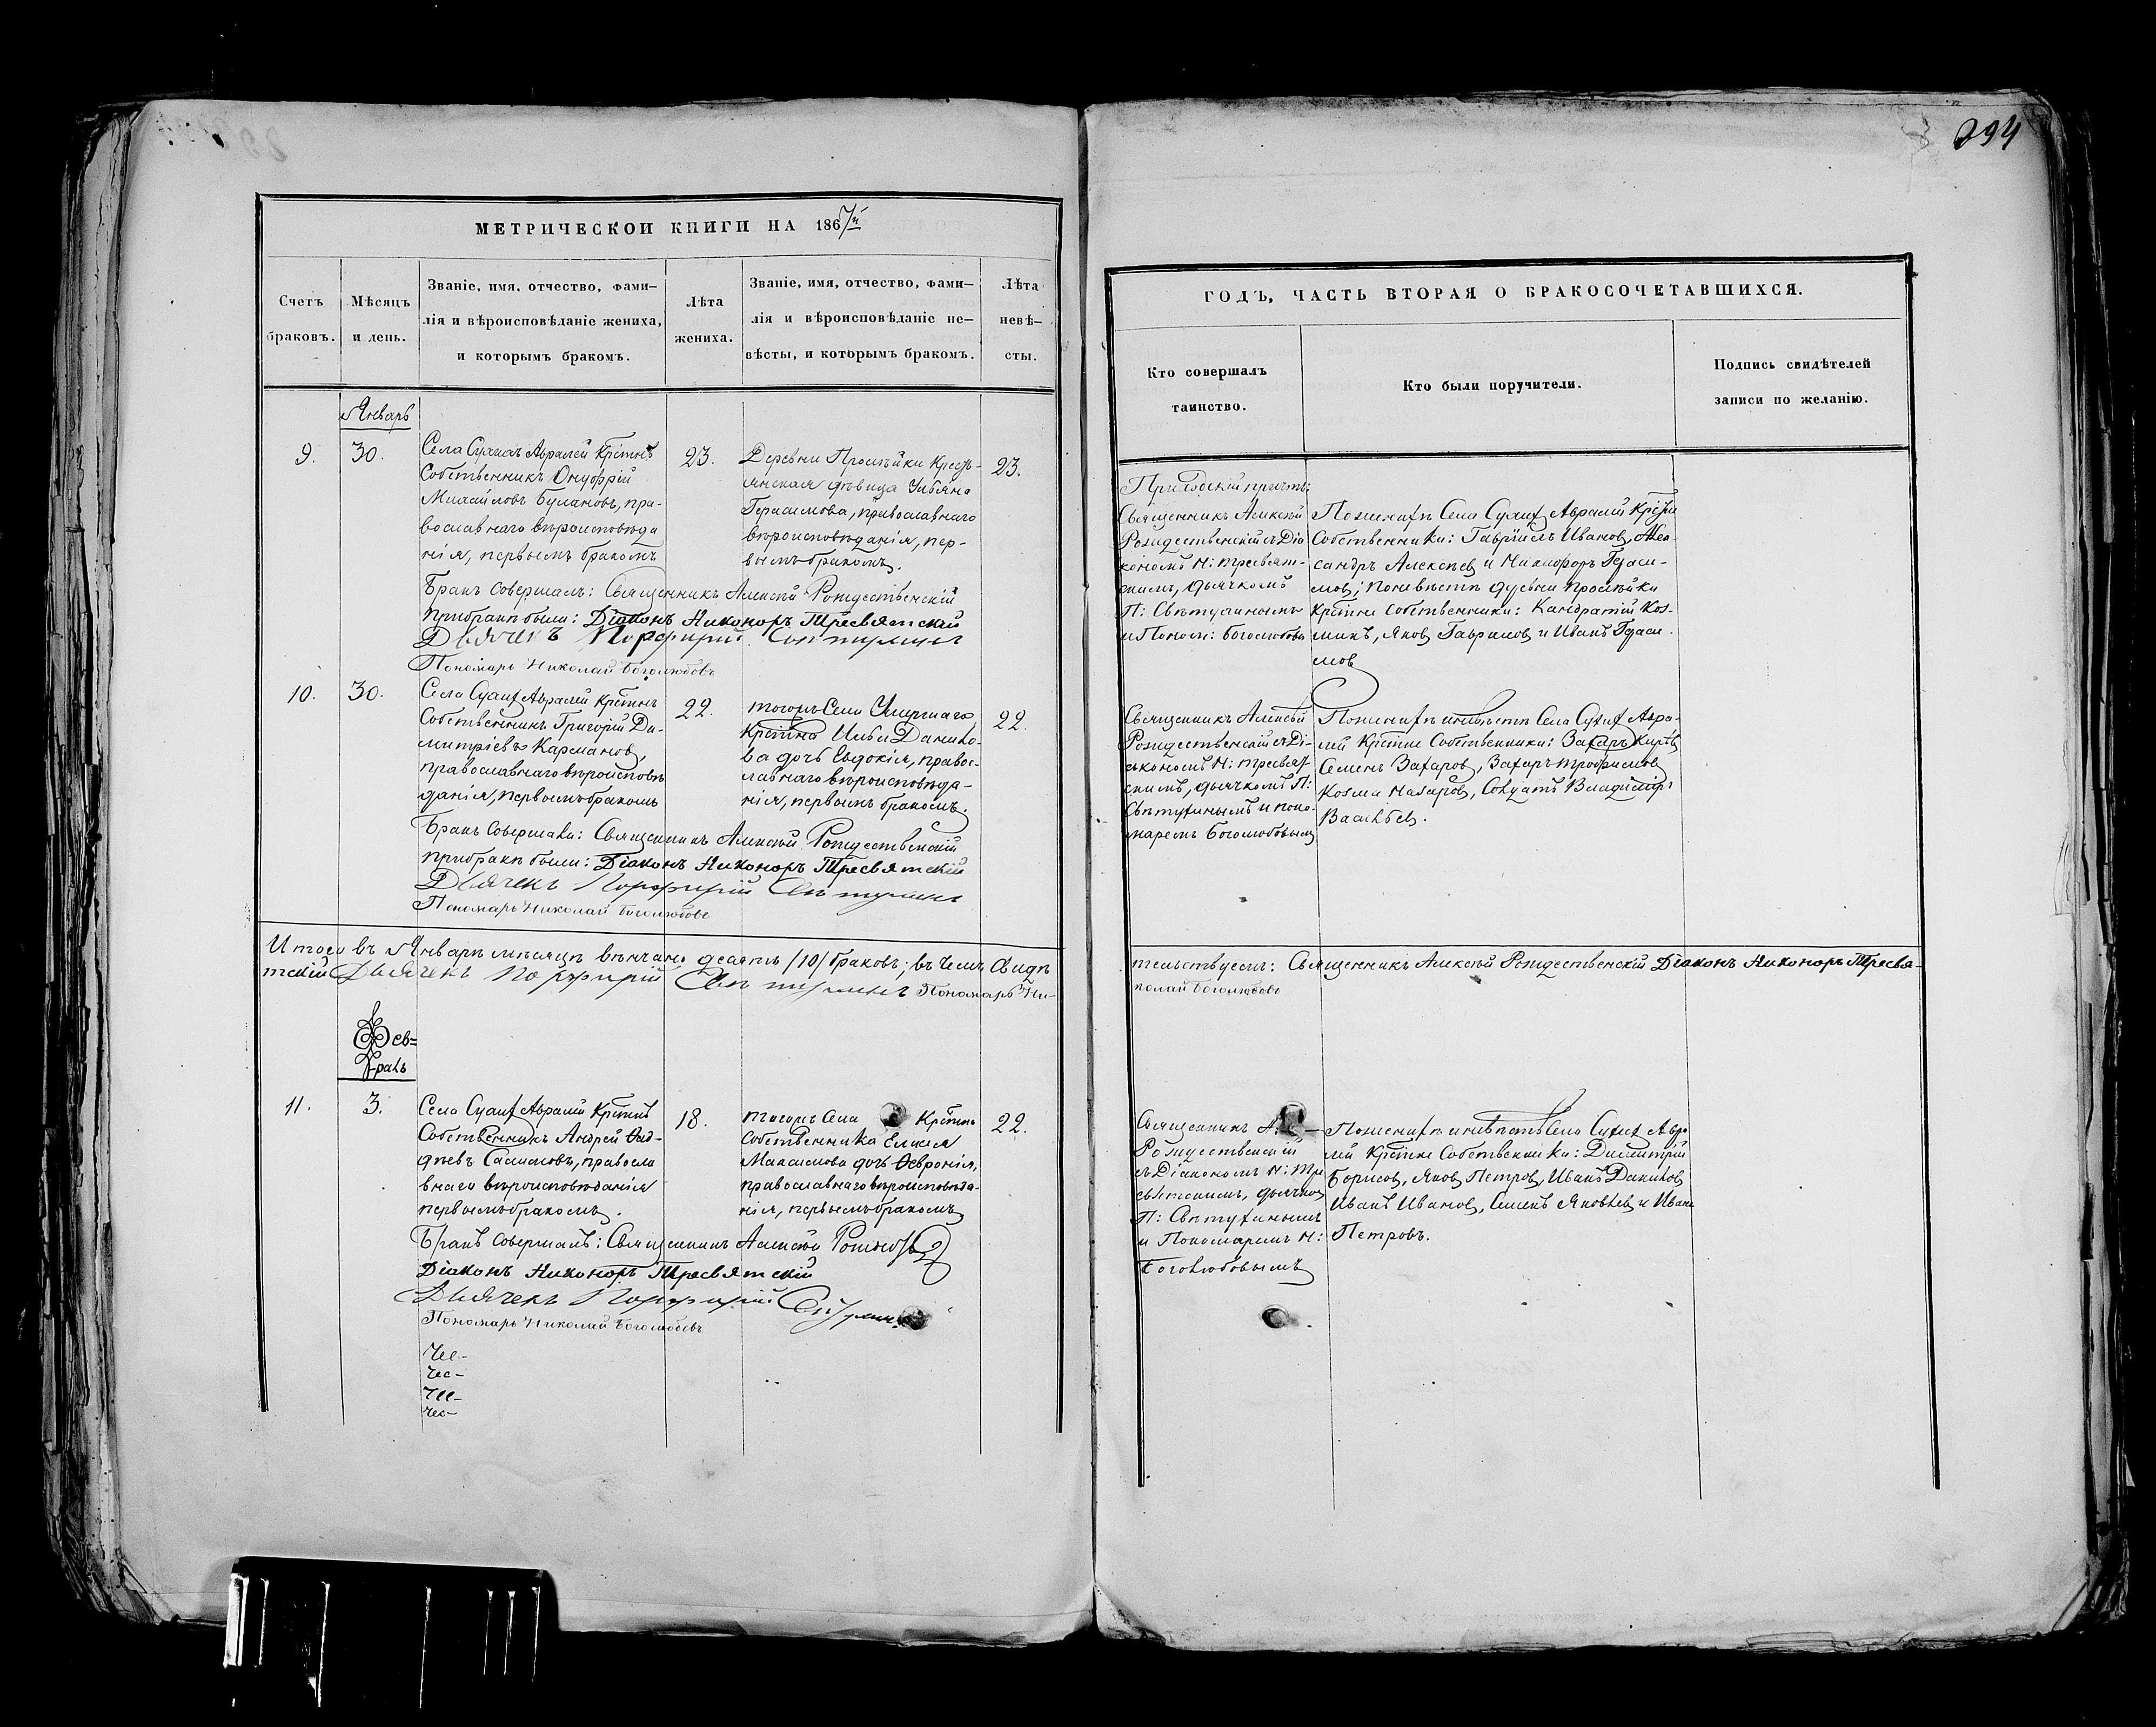 294
МЕТРИЧЕСКОЙ КНИГИ НА 1867й
Счетъ
браковъ.
Мѣсяцъ
и день.
Званіе, имя, отчество, фами-
лія и вѣроисповѣданіе жениха,
и которымъ бракомъ.
Лѣта
жениха.
Званіе, имя, отчество, фами-
лія и вѣроисповѣданіе не-
вѣсты, и которымъ бракомъ.
Лѣта
невѣ-
сты.
Январь
9.
30.
Села Сухихъ Авралей Крестнъ
Собственникъ Онуфрій
Михайловъ Булановъ, пра-
вославнаго вѣроисповѣда
нія, первымъ бракомъ
23.
Деревни Кресть-
янская дѣвица Ульяна
Герасимова, православнаго
вѣроисповѣданія, пер-
вымъ бракомъ.
23.
Бракъ совершалъ: Священникъ Алексѣй Рождественскій
При бракѣ были: Діаконъ Никоноръ Тресвятскій
Дьячекъ Порфирій Свѣтухинъ
Пономарь Николай Боголюбовъ
10.
30.
Села Сухихъ Авралей Крестнъ
Собственникъ Григорій Ди-
митріевъ Кармановъ,
православнаго вѣроисповѣ
данія, первымъ бракомъ
22.
тогожъ Села Умершаго
Крестна Ильи Данило-
ва дочь Евдокія, правос-
лавнаго вѣроисповѣда-
нія, первымъ бракомъ.
22.
Бракъ Совершали: Священникъ Алексѣй Рождественскій
при бракѣ были: Діаконъ Никоноръ Тресвятскій
Дьячекъ Порфирій Свѣтухинъ
Пономарь Николай Боголюбовъ
Итого въ Январѣ мѣсяцѣ вѣнчано десять /10/ браковъ; въ чемъ Свидѣ
тскій Дьячекъ Порфирій Свѣтухинъ Пономарь Ни-
Фев=
раль
11.
3.
Села Сухихъ Авралей Крестнъ
Собственникъ Андрей Ѳад-
дѣевъ православ
внаго вѣроисповѣданія
первымъ бракомъ.
18.
тогожъ Села Крестна
Собственника
Максимова дочь Ѳевронія,
православнаго вѣроисповѣда-
нія, первымъ бракомъ
22.
Бракъ Совершалъ: Священникъ Алексѣй
Діаконъ Никоноръ Тресвятскій
Дьячекъ Порфирій Свѣтухинъ
Пономарь Николай Боголюбовъ
ГОДЪ, ЧАСТЬ ВТОРАЯ О БРАКОСОЧЕТАВШИХСЯ.
Кто совершалъ
таинство.
Кто были поручители.
Подпись свидѣтелей
записи по желанію.
Приходскій причтъ:
Священникъ Алексѣй
Рождественскій съ Діа
кономъ Н: Тресвят-
скимъ, дьячкомъ
П: Свѣтухинымъ
и Поном: Боголюбовы
По женихѣ Села Сухихъ Авралей Крестне
Собственники: Гавріилъ Ивановъ, Алек
сандръ Алексѣевъ и Никифоръ Гераси-
мовъ; по невѣстѣ деревни
Крестне Собственники: Кандратій Коз-
минъ, Яковъ Гавриловъ и Иванъ Гераси-
мовъ
Священникъ Алексѣй
Рождественскій съ Ді-
якономъ Н: Тресвят
скимъ, дьячкомъ П:
Свѣтухинымъ и поно-
маремъ Боголюбовымъ
По женихѣ и невѣстѣ Села Сухихъ Авра-
лей Крестне Собственники: Захаръ
Семенъ Захаровъ, Захаръ Трофимовъ
Козма Назаровъ, Солдатъ Владиміръ
Васильевъ.
тельствуемъ: Священникъ Алексѣй Рождественскій Діаконъ Никоноръ Тресвя-
колай Боголюбовъ
Священникъ
Рождественскій
съ Діакономъ Н: Тре
святскимъ, дьячкомъ
П: Свѣтухинымъ
и Пономаремъ Н:
Боголюбовымъ
По женихѣ и невѣстѣ Села Сухихъ Авра
лей Крестне Собственники: Димитрій
Борисовъ, Яковъ Петровъ, Иванъ Даниловъ
Иванъ Ивановъ, Семенъ Яковлевъ и Иванъ
Петровъ.